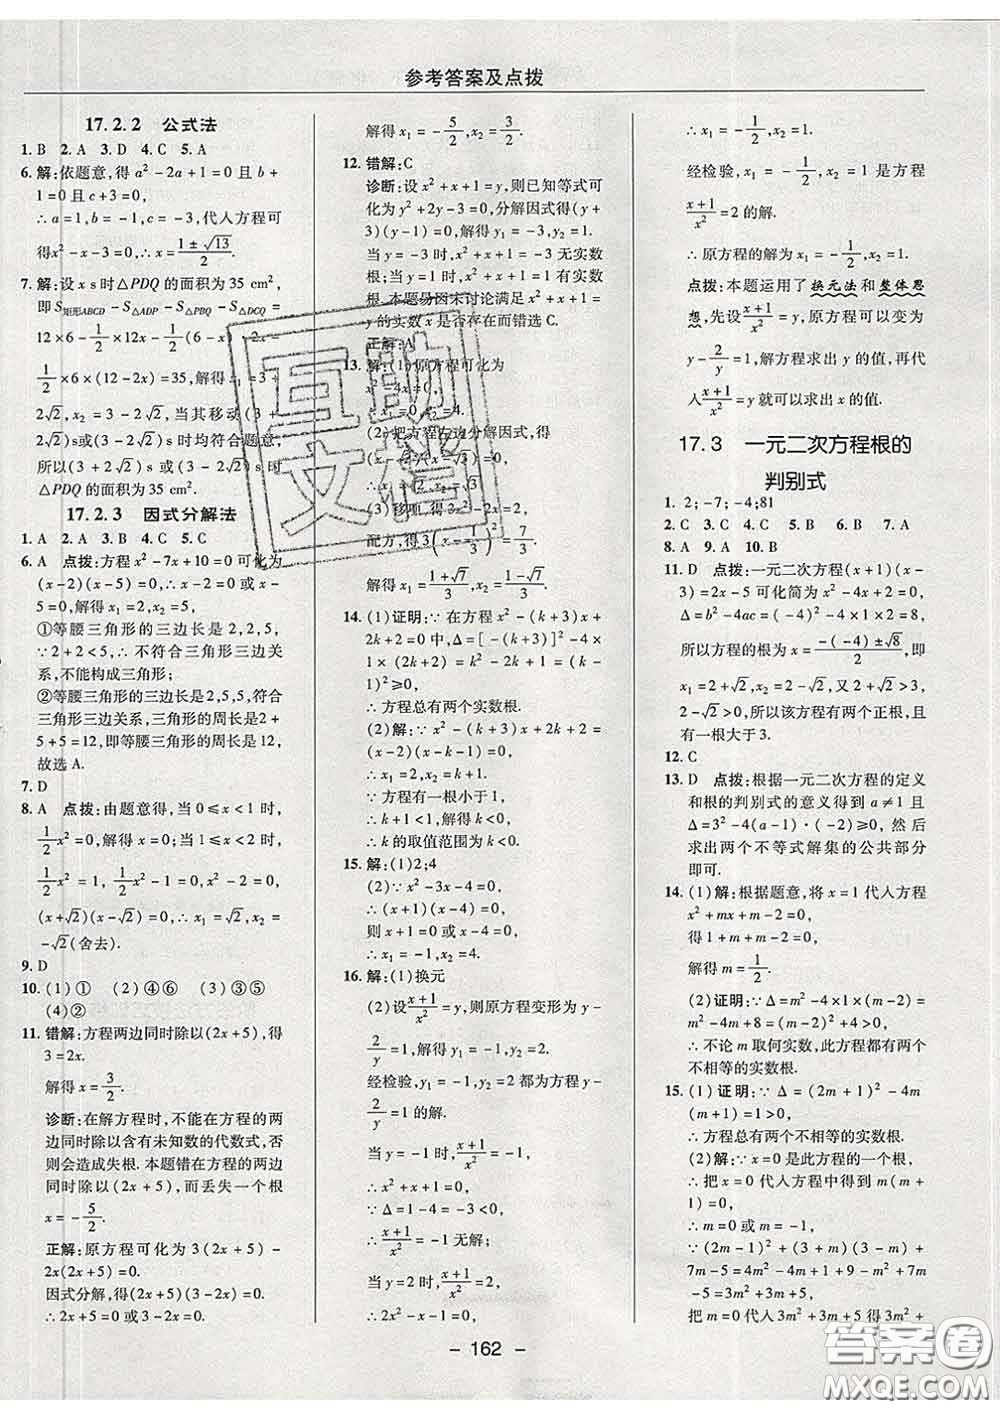 参考答案及点拨
17.2.2 公式法
1. B 2. A 3. D 4. C 5. A
6. 解:依题意,得 a²-2a+1=0 且 b+
1=0 且 c+3=0,
∴a=1,b=-1,c=-3,代人方程可
得x²-x-3=0,∴x=(1±√13)/2.
7. 解:设 x s 时△PDQ 的面积为 35 cm²,
即 S矩形ABCD-S△ADP-S△PBQ-S△DCQ=
12×6-1/2×12x-1/2(6-x)·2x-
1/2×6×(12-2x)=35,解得x₁=3+
2√2,x₂=3-2√2,当其移动(3+
2√2)s或(3-2√2)s时均符合题意,
所以(3+2√2)s或(3-2√2)s时
△PDQ 的面积为 35 cm².
17.2.3 因式分解法
1. A 2. A 3. A 4. D 5. C
6. A 点拨:方程x²-7x+10=0可化为
(x-2)(x-5)=0,
∴x₁=2,x₂=5,
①等腰三角形的三边长是2,2,5,
∵2+2<5,∴不符合三角形三边关
系,不能构成三角形;
②等腰三角形的三边长是2,5,5,符合
三角形三边关系,三角形的周长是2+
5+5=12,即等腰三角形的周长是12,
故选 A.
7. D
8. A 点拨:由题意得,当0≤x<1时,
1/2x²=0,解得x=0;当1≤x<2时,
1/2x²=1,∴1/2x²-1=0,
(x+√2)(x-√2)=0,∴x₁=√2,x₂=
-√2(舍去).
9. D
10. (1)① (2)④⑥ (3)③⑤
(4)②
11. 错解:方程两边同时除以(2x+5),得
3=2x.
解得x=3/2.
诊断:在解方程时,不能在方程的两
边同时除以含有未知数的代数式,否
则会造成失根.本题错在方程的两边
同时除以(2x+5),而丢失一个根
x=-5/2.
正解:原方程可化为3(2x+5)-
2x(2x+5)=0.
因式分解,得(2x+5)(3-2x)=0.
∴2x+5=0或3-2x=0,
解得x₁=-5/2,x₂=3/2.
12. 错解:C
诊断:设x²+x+1=y,则已知等式可
化为y²+2y-3=0,分解因式得(y+
3)(y-1)=0,解得y₁=-3,y₂=1.
当y=-3时,x²+x+1=-3无实数
根;当y=1时,x²+x+1=1有实数
根.本题易因未讨论满足x²+x+1
=y的实数x是否存在而错选C.
正解:A
13. 解:(1)原方程可化为
x²-4x=0,
∴x₁=0,x₂=4.
(2)把方程左边分解因式,得
(x-√2)(x-√3)=0.
∴x₁=√2,x₂=√3.
(3)移项,得3x²-2x=2,
配方,得3(x-1/3)²=7/3,
解得x₁=(1+√7)/3,x₂=(1-√7)/3.
14. (1)证明:∵在方程x²-(k+3)x+
2k+2=0中,Δ=[-(k+3)]²-4×
1×(2k+2)=k²-2k+1=(k-
1)²≥0,
∴方程总有两个实数根.
(2)解:∵x²-(k+3)x+2k+2=
(x-2)(x-k-1)=0,
∴x₁=2,x₂=k+1.
∵方程有一根小于1,
∴k+1<1,解得k<0,
∴k的取值范围为k<0.
15. 解:(1)2;4
(2)∵x²-3x-4=0,
∴(x+1)(x-4)=0,
则x+1=0或x-4=0,
∴x₁=-1,x₂=4.
16. 解:(1)换元
(2)设(x+1)/x²=y,则原方程变形为y-
2/y=1,解得y₁=-1,y₂=2.
经检验,y₁=-1,y₂=2都为方程y-
2/y=1的解.
当y=-1时,(x+1)/x²=-1,
∴x²+x+1=0,
∵Δ=1-4=-3<0,
∴(x+1)/x²=-1无解;
当y=2时,(x+1)/x²=2,
∴2x²-x-1=0,
∴x₁=-1/2,x₂=1.
经检验,x₁=-1/2,x₂=1是方程
(x+1)/x²=2的解.
∴原方程的解为x₁=-1/2,x₂=1.
点拨:本题运用了换元法和整体思
想,先设(x+1)/x²=y,原方程可以变为
y-2/y=1,解方程求出y的值,再代
人(x+1)/x²=y就可以求出x的值.
17.3 一元二次方程根的
判别式
1. 2;-7;-4;81
2. C 3. C 4. C 5. B 6. B 7. B
8. A 9. A 10. B
11. D 点拨:一元二次方程(x+1)(x-
3)=2x-5可化简为x²-4x+2=0,
Δ=b²-4ac=(-4)²-4×1×2=8,
所以方程的根为x=(-(-4)±√8)/2,即
x₁=2+√2,x₂=2-√2,又2+√2>3,
2-√2>0,所以该方程有两个正根,且
有一根大于3.
12. C
13. D 点拨:根据一元二次方程的定义
和根的判别式的意义得到a≠1且
Δ=3²-4(a-1)·(-2)≥0,然后
求出两个不等式解集的公共部分
即可.
14. (1)解:根据题意,将x=1代人方程
x²+mx+m-2=0,
得1+m+m-2=0,
解得m=1/2.
(2)证明:∵Δ=m²-4×1×(m-2)=
m²-4m+8=(m-2)²+4>0,
∴不论m取何实数,此方程都有两个
不相等的实数根.
15. (1)证明:∵Δ=(2m+1)²-4m
(m+1)=1>0,
∴方程总有两个不相等的实数根.
(2)解:∵x=0是此方程的一个根,
∴把x=0代人方程中得到m(m+
1)=0,
∴m=0或m=-1,
∵(2m-1)²+(3+m)(3-m)+
7m-5=4m²-4m+1+9-m²+
7m-5=3m²+3m+5,
把m=0代人3m²+3m+5得3m²+
- 162 -
互助
文档
答案圈
MXQE.COM